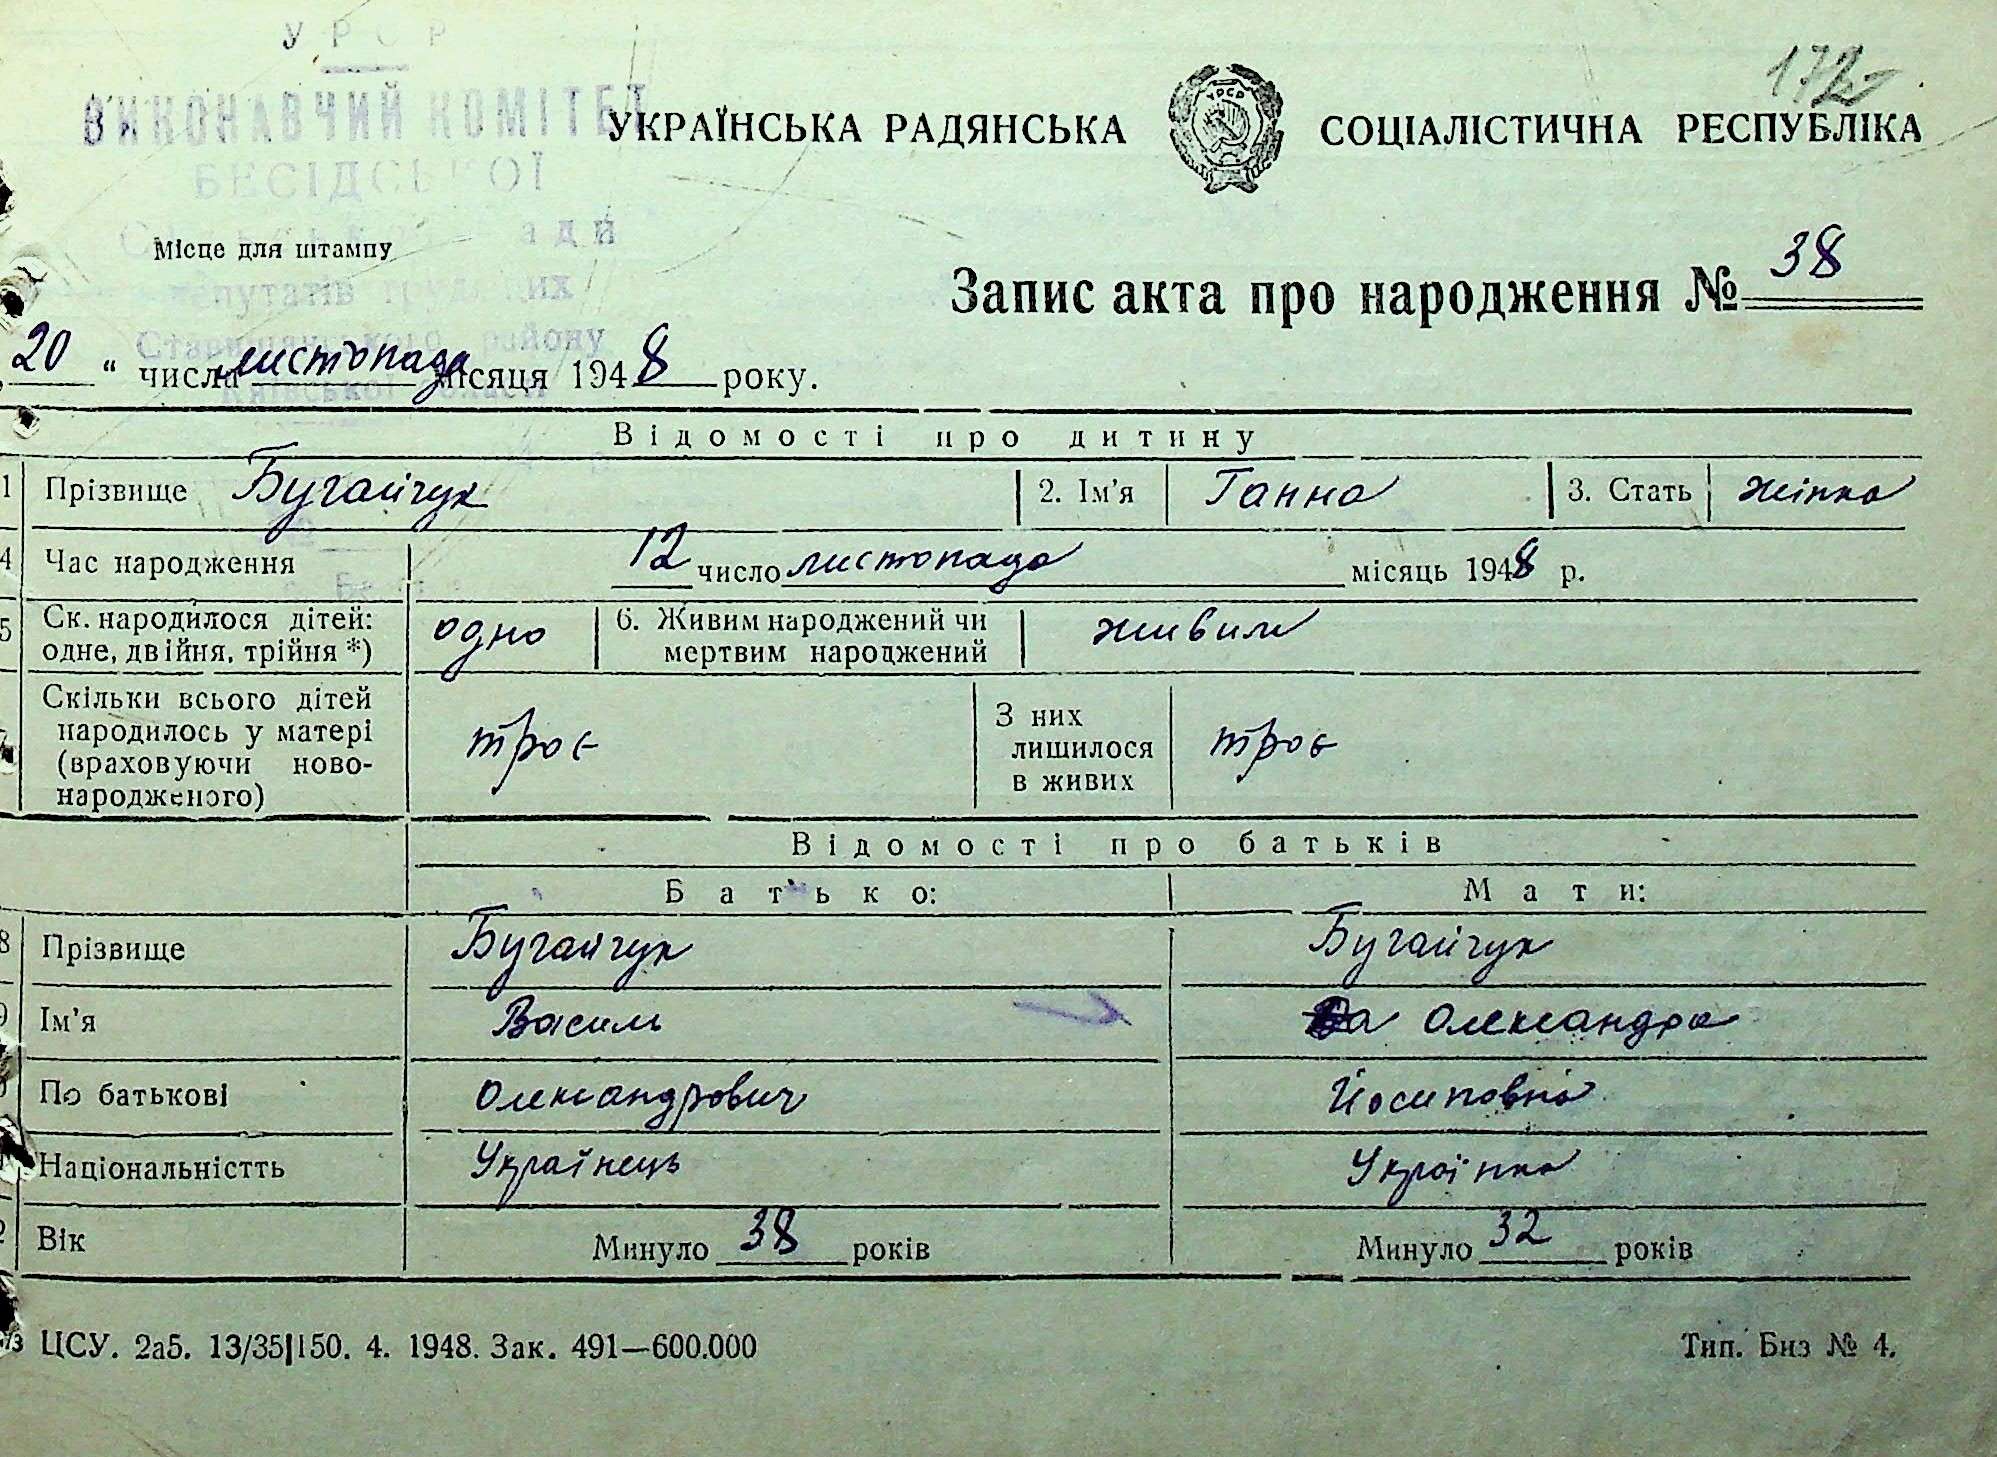 УРСР
172
ВИКОНАВЧИЙ КОМІТЕТ
УКРАЇНСЬКА РАДЯНСЬКА СОЦІАЛІСТИЧНА РЕСПУБЛІКА
БЕСІДСЬКОЇ
Місце для штампу
Запис акта про народження № 38
Ставищанського району
„20“ числа листопада місяця 1948 року.
Київської області
Відомості про дитину
1 Прізвище Бугайчук 2. Ім'я Ганна 3. Стать жінка
4 Час народження 12 число листопада місяць 1948 р.
5 Ск. народилося дітей: одно 6. Живим народжений чи живим
одне, двійня, трійня *) мертвим народжений
Скільки всього дітей
народилось у матері троє З них троє
(враховуючи ново- лишилося
народженого) в живих
Відомості про батьків
Батько: Мати:
8 Прізвище Бугайчук Бугайчук
9 Ім'я Василь Олександра
По батькові Олександрович Йосиповна
Національністть Українець Українка
2 Вік Минуло 38 років Минуло 32 років
ЦСУ. 2а5. 13/35|150. 4. 1948. Зак. 491—600.000 Тип. Биз № 4.